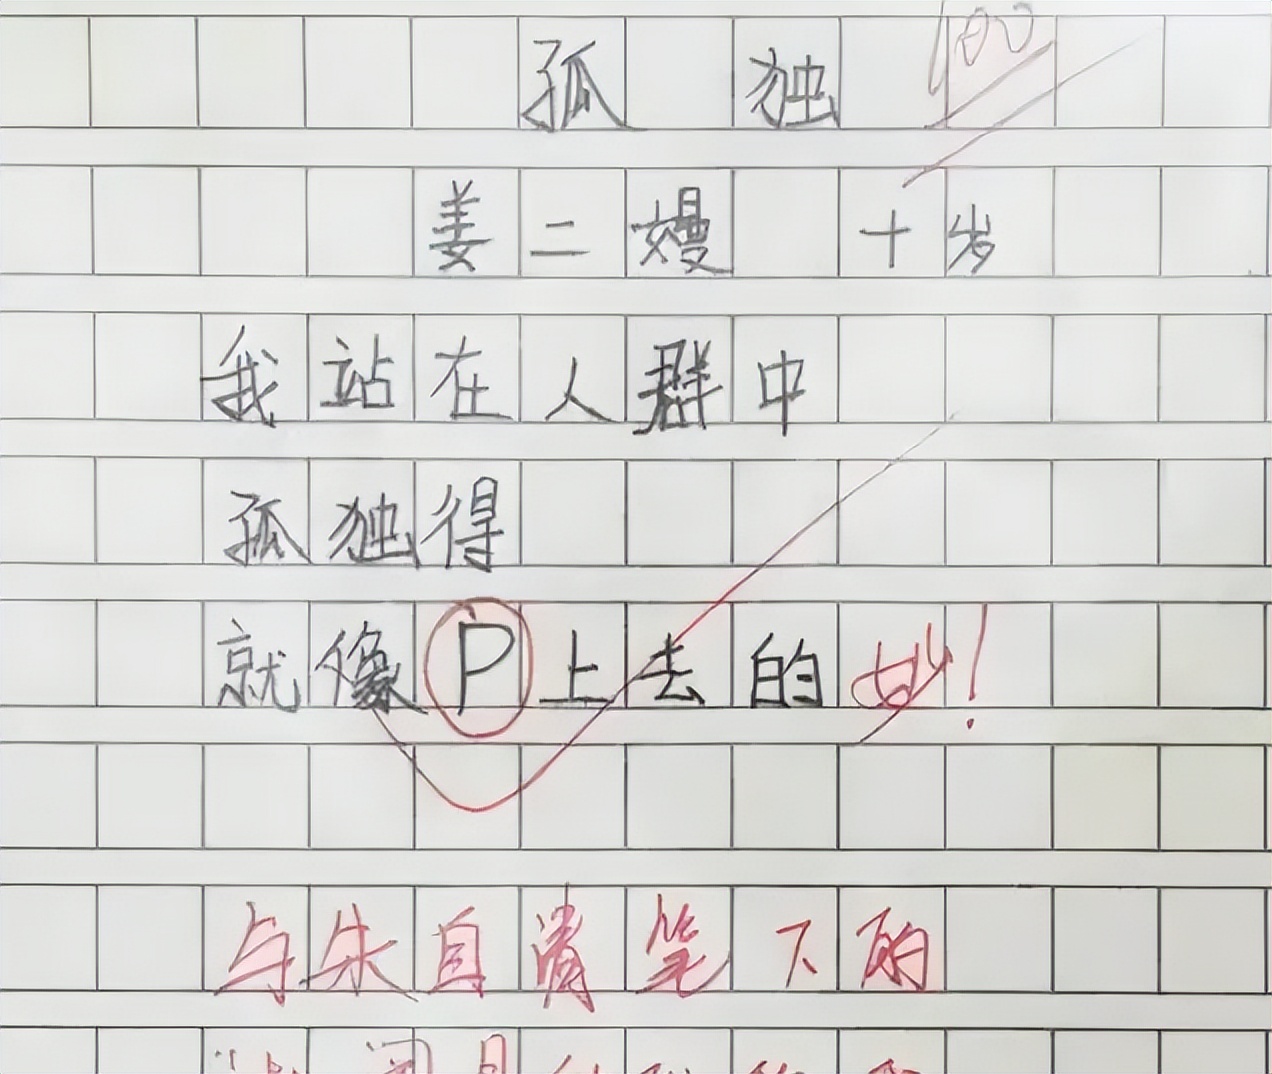 孤独 100
姜二嫚 十岁
我站在人群中
孤独得
就像P上去的 妙!
与朱自清笔下的